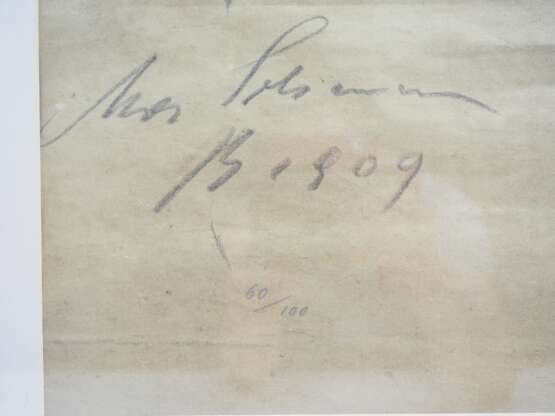 Max
B 1909
60/100